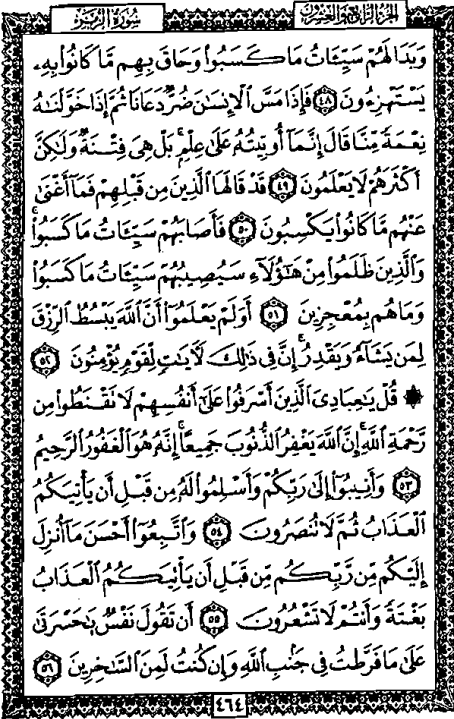 الجزء الرابع والعشرون
سورة الزمر
وَبَدَا لَهُمْ سَيِّئَاتُ مَا كَسَبُوا وَحَاقَ بِهِم مَّا كَانُوا بِهِۦ
يَسْتَهْزِءُونَ ٤٨ فَإِذَا مَسَّ ٱلْإِنسَٰنَ ضُرٌّ دَعَانَا ثُمَّ إِذَا خَوَّلْنَٰهُ
نِعْمَةً مِّنَّا قَالَ إِنَّمَآ أُوتِيتُهُۥ عَلَىٰ عِلْمٍۭ بَلْ هِىَ فِتْنَةٌ وَلَٰكِنَّ
أَكْثَرَهُمْ لَا يَعْلَمُونَ ٤٩ قَدْ قَالَهَا ٱلَّذِينَ مِن قَبْلِهِمْ فَمَآ أَغْنَىٰ
عَنْهُم مَّا كَانُوا يَكْسِبُونَ ٥٠ فَأَصَابَهُمْ سَيِّئَاتُ مَا كَسَبُوا
وَٱلَّذِينَ ظَلَمُوا مِنْ هَٰٓؤُلَآءِ سَيُصِيبُهُمْ سَيِّئَاتُ مَا كَسَبُوا
وَمَا هُم بِمُعْجِزِينَ ٥١ أَوَلَمْ يَعْلَمُوٓا أَنَّ ٱللَّهَ يَبْسُطُ ٱلرِّزْقَ
لِمَن يَشَآءُ وَيَقْدِرُ إِنَّ فِى ذَٰلِكَ لَءَايَٰتٍ لِّقَوْمٍ يُؤْمِنُونَ ٥٢
۞ قُلْ يَٰعِبَادِىَ ٱلَّذِينَ أَسْرَفُوا عَلَىٰٓ أَنفُسِهِمْ لَا تَقْنَطُوا مِن
رَّحْمَةِ ٱللَّهِ إِنَّ ٱللَّهَ يَغْفِرُ ٱلذُّنُوبَ جَمِيعًا إِنَّهُۥ هُوَ ٱلْغَفُورُ ٱلرَّحِيمُ
٥٣ وَأَنِيبُوٓا إِلَىٰ رَبِّكُمْ وَأَسْلِمُوا لَهُۥ مِن قَبْلِ أَن يَأْتِيَكُمُ
ٱلْعَذَابُ ثُمَّ لَا تُنصَرُونَ ٥٤ وَٱتَّبِعُوٓا أَحْسَنَ مَآ أُنزِلَ
إِلَيْكُم مِّن رَّبِّكُم مِّن قَبْلِ أَن يَأْتِيَكُمُ ٱلْعَذَابُ
بَغْتَةً وَأَنتُمْ لَا تَشْعُرُونَ ٥٥ أَن تَقُولَ نَفْسٌ يَٰحَسْرَتَىٰ
عَلَىٰ مَا فَرَّطتُ فِى جَنۢبِ ٱللَّهِ وَإِن كُنتُ لَمِنَ ٱلسَّٰخِرِينَ ٥٦
٤٦٤